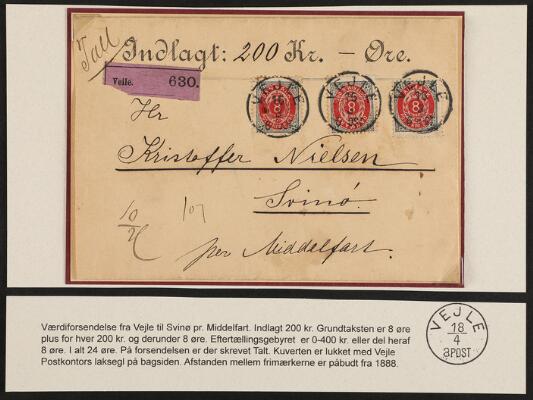 Talt
Indlagt: 200 Kr. — Øre.
Vejle. 630.
VEJLE
8
VEJLE
8
VEJLE
8
Hr
Kristoffer Nielsen
Svinø.
10
107
per Middelfart.
Værdiforsendelse fra Vejle til Svinø pr. Middelfart. Indlagt 200 kr. Grundtaksten er 8 øre
plus for hver 200 kr. og derunder 8 øre. Eftertællingsgebyret er 0-400 kr. eller del heraf
8 øre. I alt 24 øre. På forsendelsen er der skrevet Talt. Kuverten er lukket med Vejle
Postkontors laksegl på bagsiden. Afstanden mellem frimærkerne er påbudt fra 1888.
VEJLE
18
4
3POST